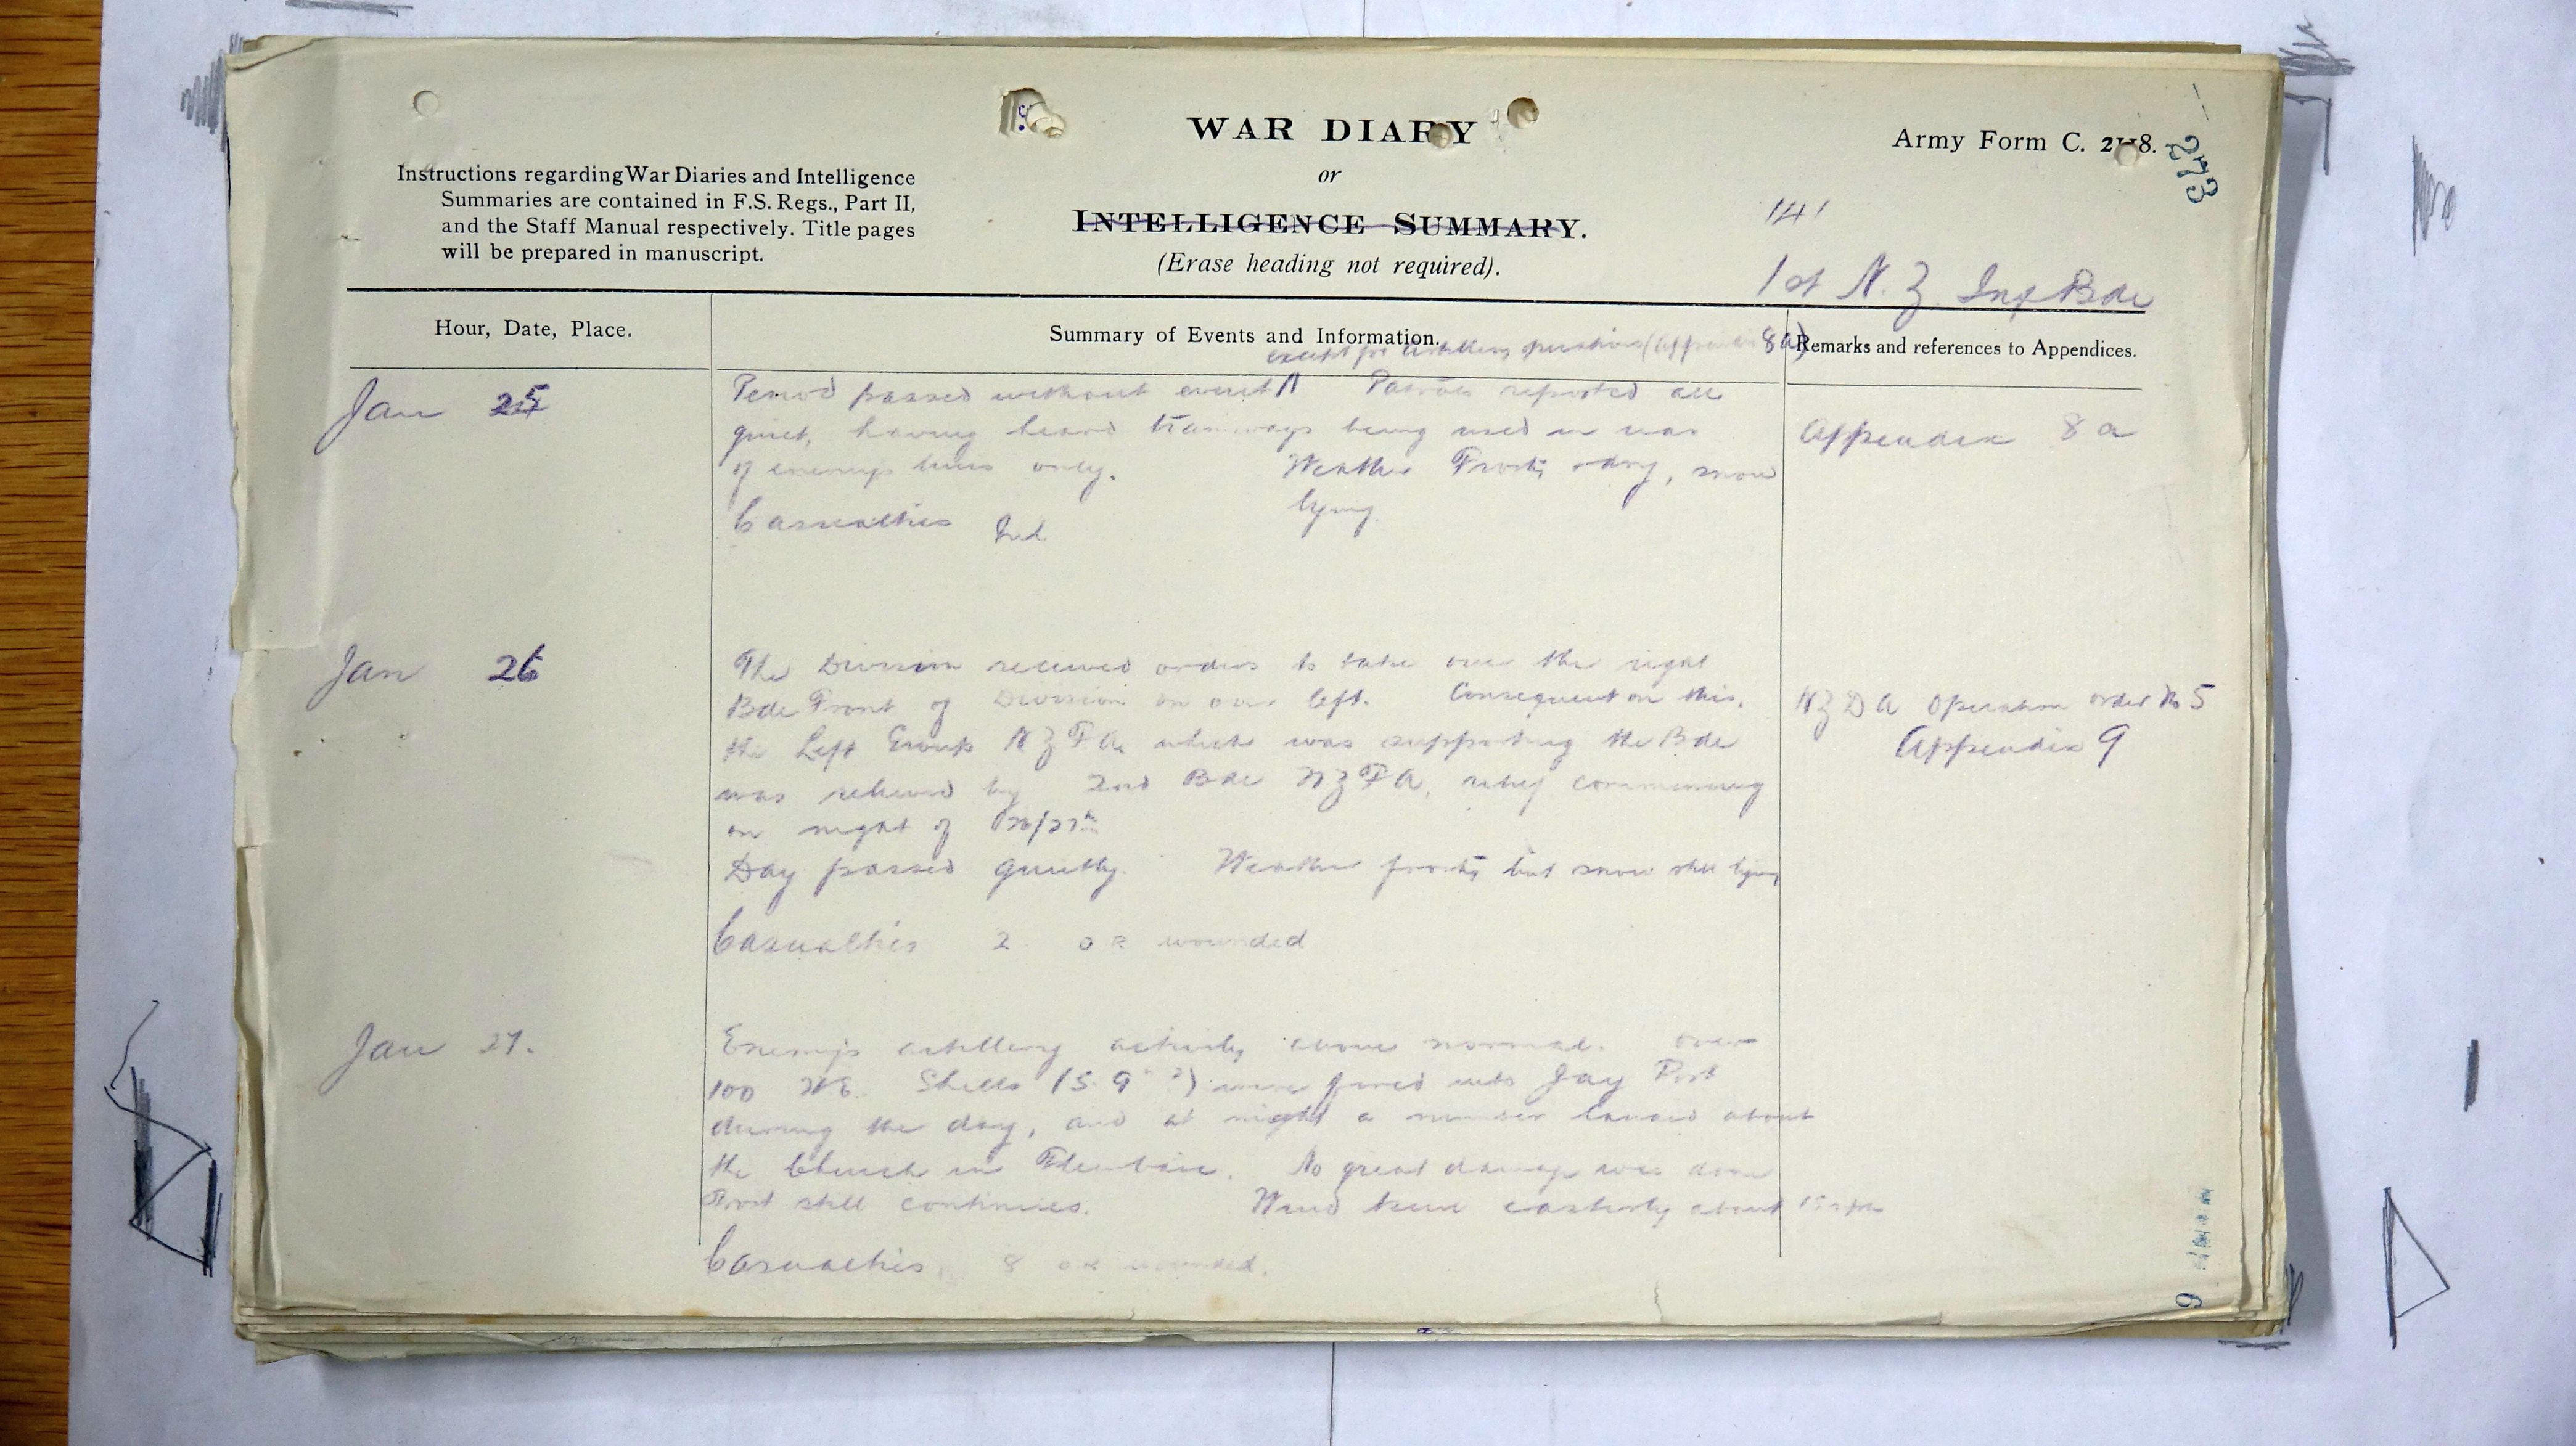 WAR DIARY
or
INTELLIGENCE SUMMARY.
(Erase heading not required).
Army Form C. 2118.
273
Instructions regarding War Diaries and Intelligence
Summaries are contained in F.S. Regs., Part II,
and the Staff Manual respectively. Title pages
will be prepared in manuscript.
141
1st N.Z. Inf Bde
Hour, Date, Place.
Summary of Events and Information.
Remarks and references to Appendices.
except for artillery operations (Appendix 8a)
Jan 25
Period passed without event Patrols reported all
quiet, having heard tramways being used in rear
of enemy's lines only. Weather Frosty & dry, snow
lying
Casualties Nil
Appendix 8a
Jan 26
The Division received orders to take over the right
Bde Front of Division on our left. Consequent on this,
the Left Group NZFA which was supporting the Bde
was relieved by 2nd Bde NZFA, relief commencing
on night of 26/27th
Day passed quietly. Weather frosty but snow still lying
Casualties 2 OR wounded
NZDA Operation order No 5
Appendix 9
Jan 27.
Enemy's artillery activity above normal. Over
100 H.E. Shells (5.9" ?) were fired into Jay Post
during the day, and at night a number landed about
the Church in Fleurbaix. No great damage was done
Frost still continues. Wind keen easterly about
Casualties 8 OR wounded.
9